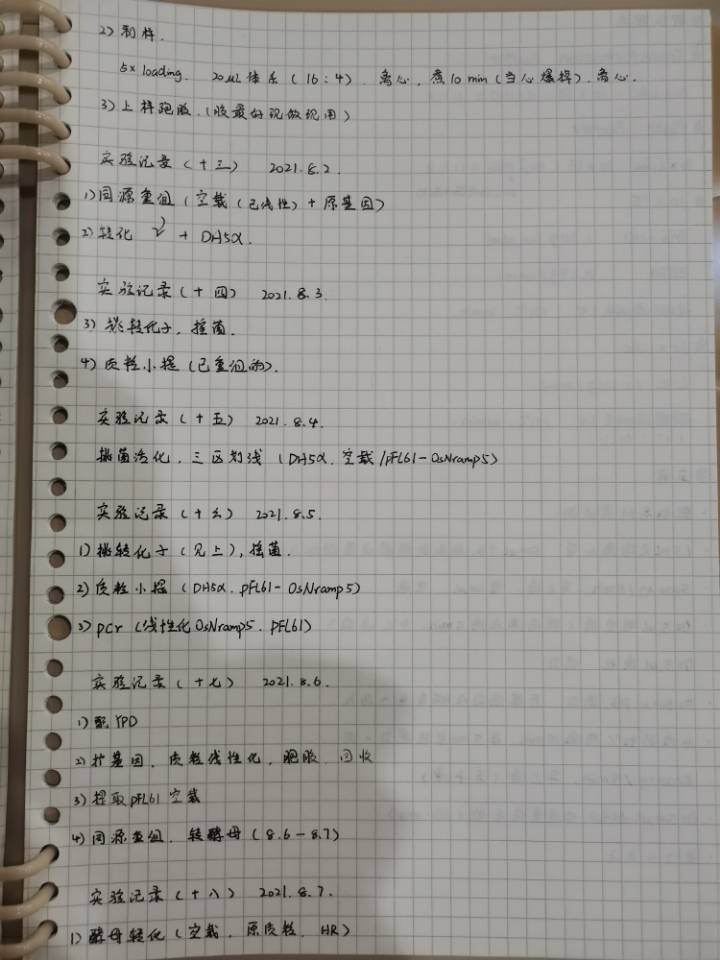 2) 制样.
5× loading. 20μL 体系 (16:4). 离心, 煮10 min (当心爆掉). 离心.
3) 上样跑胶. (胶最好现做现用)
实验记录 (十三) 2021.8.2.
1) 同源重组 (空载 (已线性) + 原基因)
2) 转化 + DH5α.
实验记录 (十四) 2021.8.3.
3) 挑转化子, 摇菌.
4) 质粒小提 (已重组的).
实验记录 (十五) 2021.8.4.
摇菌活化, 三区划线 (DH5α. 空载/pFL61-OsNramp5)
实验记录 (十六) 2021.8.5.
1) 挑转化子 (见上), 摇菌.
2) 质粒小提 (DH5α. pFL61-OsNramp5)
3) pcr (线性化OsNramp5. pFL61)
实验记录 (十七) 2021.8.6.
1) 配YPD
2) 扩基因. 质粒线性化. 跑胶. 回收
3) 提取pFL61空载
4) 同源重组. 转酵母 (8.6-8.7)
实验记录 (十八) 2021.8.7.
1) 酵母转化 (空载. 原质粒. HR)